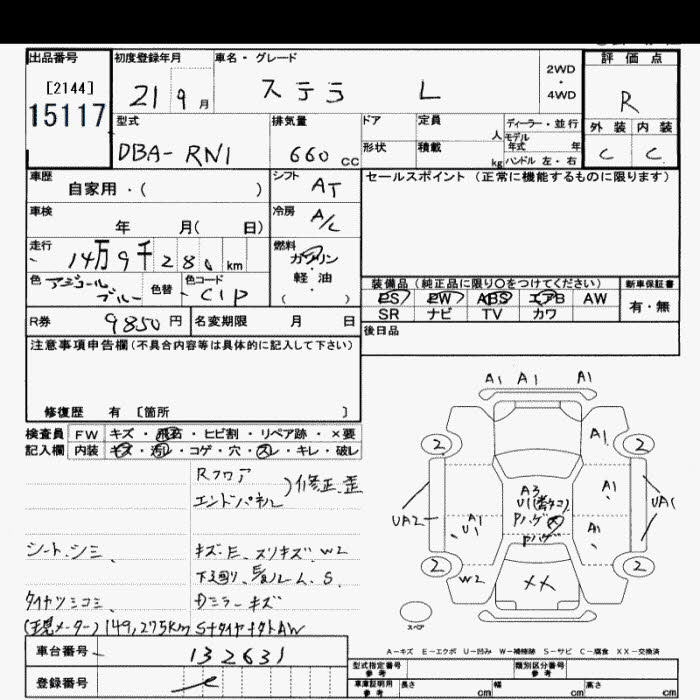 出品番号
[2144]
15117
初度登録年月
21 9月
車名・グレード
ステラ L
2WD
・
4WD
評価点
R
外装 内装
C C
型式
DBA-RN1
排気量
660 CC
ドア
定員
人
ディーラー・並行
モデル
年式 年
形状
積載
kg
ハンドル 左・右
車歴
自家用・( )
シフト
AT
セールスポイント (正常に機能するものに限ります)
車検
年 月( 日)
冷房
A/C
走行
14万9千280 km
燃料
ガソリン
・
軽油
・
( )
色
ブルー
色替
色コード
C1P
装備品 (純正品に限り○をつけてください)
新車保証書
PS PW ABS エアB AW
SR ナビ TV カワ
有・無
R券
9850円
名変期限 月 日
後日品
注意事項申告欄(不具合内容等は具体的に記入して下さい)
修復歴 有 [箇所 ]
検査員
記入欄
FW キズ・飛石・ヒビ割・リペア跡・×要
内装 キズ・汚レ・コゲ・穴・スレ・キレ・破レ
Rフロア
エンドパネル
)修正、歪
シート、シミ、
キズ・E、スリキズ W2
下廻り、
S、
タイヤツミコミ
ミラーキズ
(現メーター)149,275km
車台番号
132631
登録番号
A1 A1 A1
2 2
A1
A3
U1
Pハゲ
Pハゲ
A1
A1
UA2
A1
U1
UA1
2 2
W2
XX
スペア
A-キズ E-エクボ U-凹み W-補修跡 S-サビ C-腐食 XX-交換済
型式指定番号
参考
類別区分番号
参考
車庫証明用
参考
長さ cm
幅 cm
高さ cm